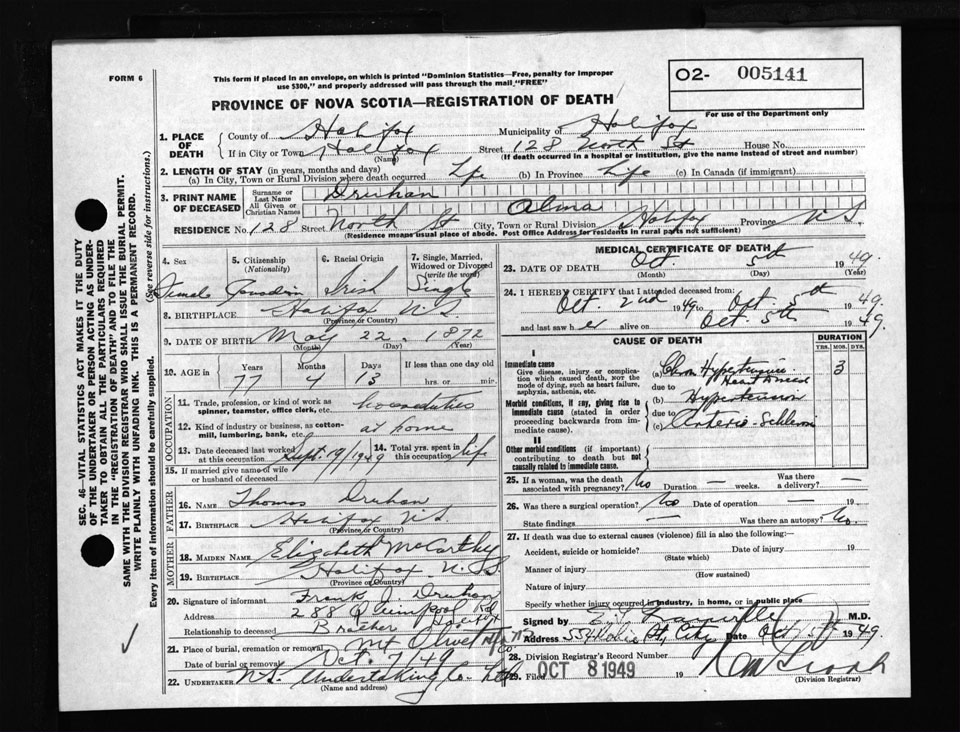 FORM 6
This form if placed in an envelope, on which is printed "Dominion Statistics—Free, penalty for improper
use $300," and properly addressed will pass through the mail "FREE"
O2- 005141
PROVINCE OF NOVA SCOTIA—REGISTRATION OF DEATH
For use of the Department only
1. PLACE OF DEATH
County of Halifax Municipality of Halifax
If in City or Town Halifax Street 128 North St House No.
(Name) (If death occurred in a hospital or institution, give the name instead of street and number)
2. LENGTH OF STAY (in years, months and days)
(a) In City, Town or Rural Division where death occurred Life (b) In Province Life (c) In Canada (if immigrant)
3. PRINT NAME OF DECEASED
Surname or Last Name Druhan
All Given or Christian Names Alma
RESIDENCE No. 128 Street North St City, Town or Rural Division Halifax Province N.S.
(Residence means usual place of abode. Post Office Address for residents in rural parts not sufficient)
4. Sex Female
5. Citizenship (Nationality) Canadian
6. Racial Origin Irish
7. Single, Married, Widowed or Divorced (write the word) Single
8. BIRTHPLACE Halifax N.S.
(Province or Country)
9. DATE OF BIRTH May 22 1872
(Month) (Day) (Year)
10. AGE in Years Months Days If less than one day old
77 4 13 hrs. or min.
OCCUPATION
11. Trade, profession, or kind of work as spinner, teamster, office clerk, etc. houseduties
12. Kind of industry or business, as cotton-mill, lumbering, bank, etc. at home
13. Date deceased last worked at this occupation Sept. 19/1949
14. Total yrs. spent in this occupation Life
15. If married give name of wife or husband of deceased
FATHER
16. NAME Thomas Druhan
17. BIRTHPLACE Halifax N.S.
(Province or Country)
MOTHER
18. MAIDEN NAME Elizabeth McCarthy
19. BIRTHPLACE Halifax N.S.
(Province or Country)
20. Signature of informant Frank J. Druhan
Address 288 Quinpool Rd
Relationship to deceased Brother
21. Place of burial, cremation or removal Mt Olivet
Date of burial or removal Oct. 7/49
22. UNDERTAKER N.S. Undertaking Co. Ltd
(Name and address)
MEDICAL CERTIFICATE OF DEATH
23. DATE OF DEATH Oct. 5th 1949.
(Month) (Day) (Year)
24. I HEREBY CERTIFY that I attended deceased from:
Oct. 2nd 1949 Oct. 5th 1949.
and last saw her alive on Oct 5th 1949.
CAUSE OF DEATH
DURATION
YRS. MOS. DYS.
I
Immediate cause
Give disease, injury or complication which caused death, not the mode of dying, such as heart failure, asphyxia, asthenia, etc.
(a) Chron Hypertensive 3
Heart
due to
Morbid conditions, if any, giving rise to immediate cause (stated in order proceeding backwards from immediate cause).
(b) Hypertension
due to
(c) Arterio-
II
Other morbid conditions (if important) contributing to death but not causally related to immediate cause.
25. If a woman, was the death associated with pregnancy? No Duration — weeks. Was there a delivery? —
26. Was there a surgical operation? No Date of operation — 19
State findings — Was there an autopsy? No.
27. If death was due to external causes (violence) fill in also the following:—
Accident, suicide or homicide? Date of injury 19
(State which)
Manner of injury
(How sustained)
Nature of injury
Specify whether injury occurred in industry, in home, or in public place
Signed by M.D.
Address St, City Date Oct 5th 1949.
28. Division Registrar's Record Number
29. Filed OCT 8 1949 19
(Division Registrar)
SEC. 46—VITAL STATISTICS ACT MAKES IT THE DUTY
OF THE UNDERTAKER OR PERSON ACTING AS UNDER-
TAKER TO OBTAIN ALL THE PARTICULARS REQUIRED
IN THE "REGISTRATION OF DEATH" AND TO FILE THE
SAME WITH THE DIVISION REGISTRAR WHO SHALL ISSUE THE BURIAL PERMIT.
WRITE PLAINLY WITH UNFADING INK. THIS IS A PERMANENT RECORD.
Every item of information should be carefully supplied. (See reverse side for instructions.)